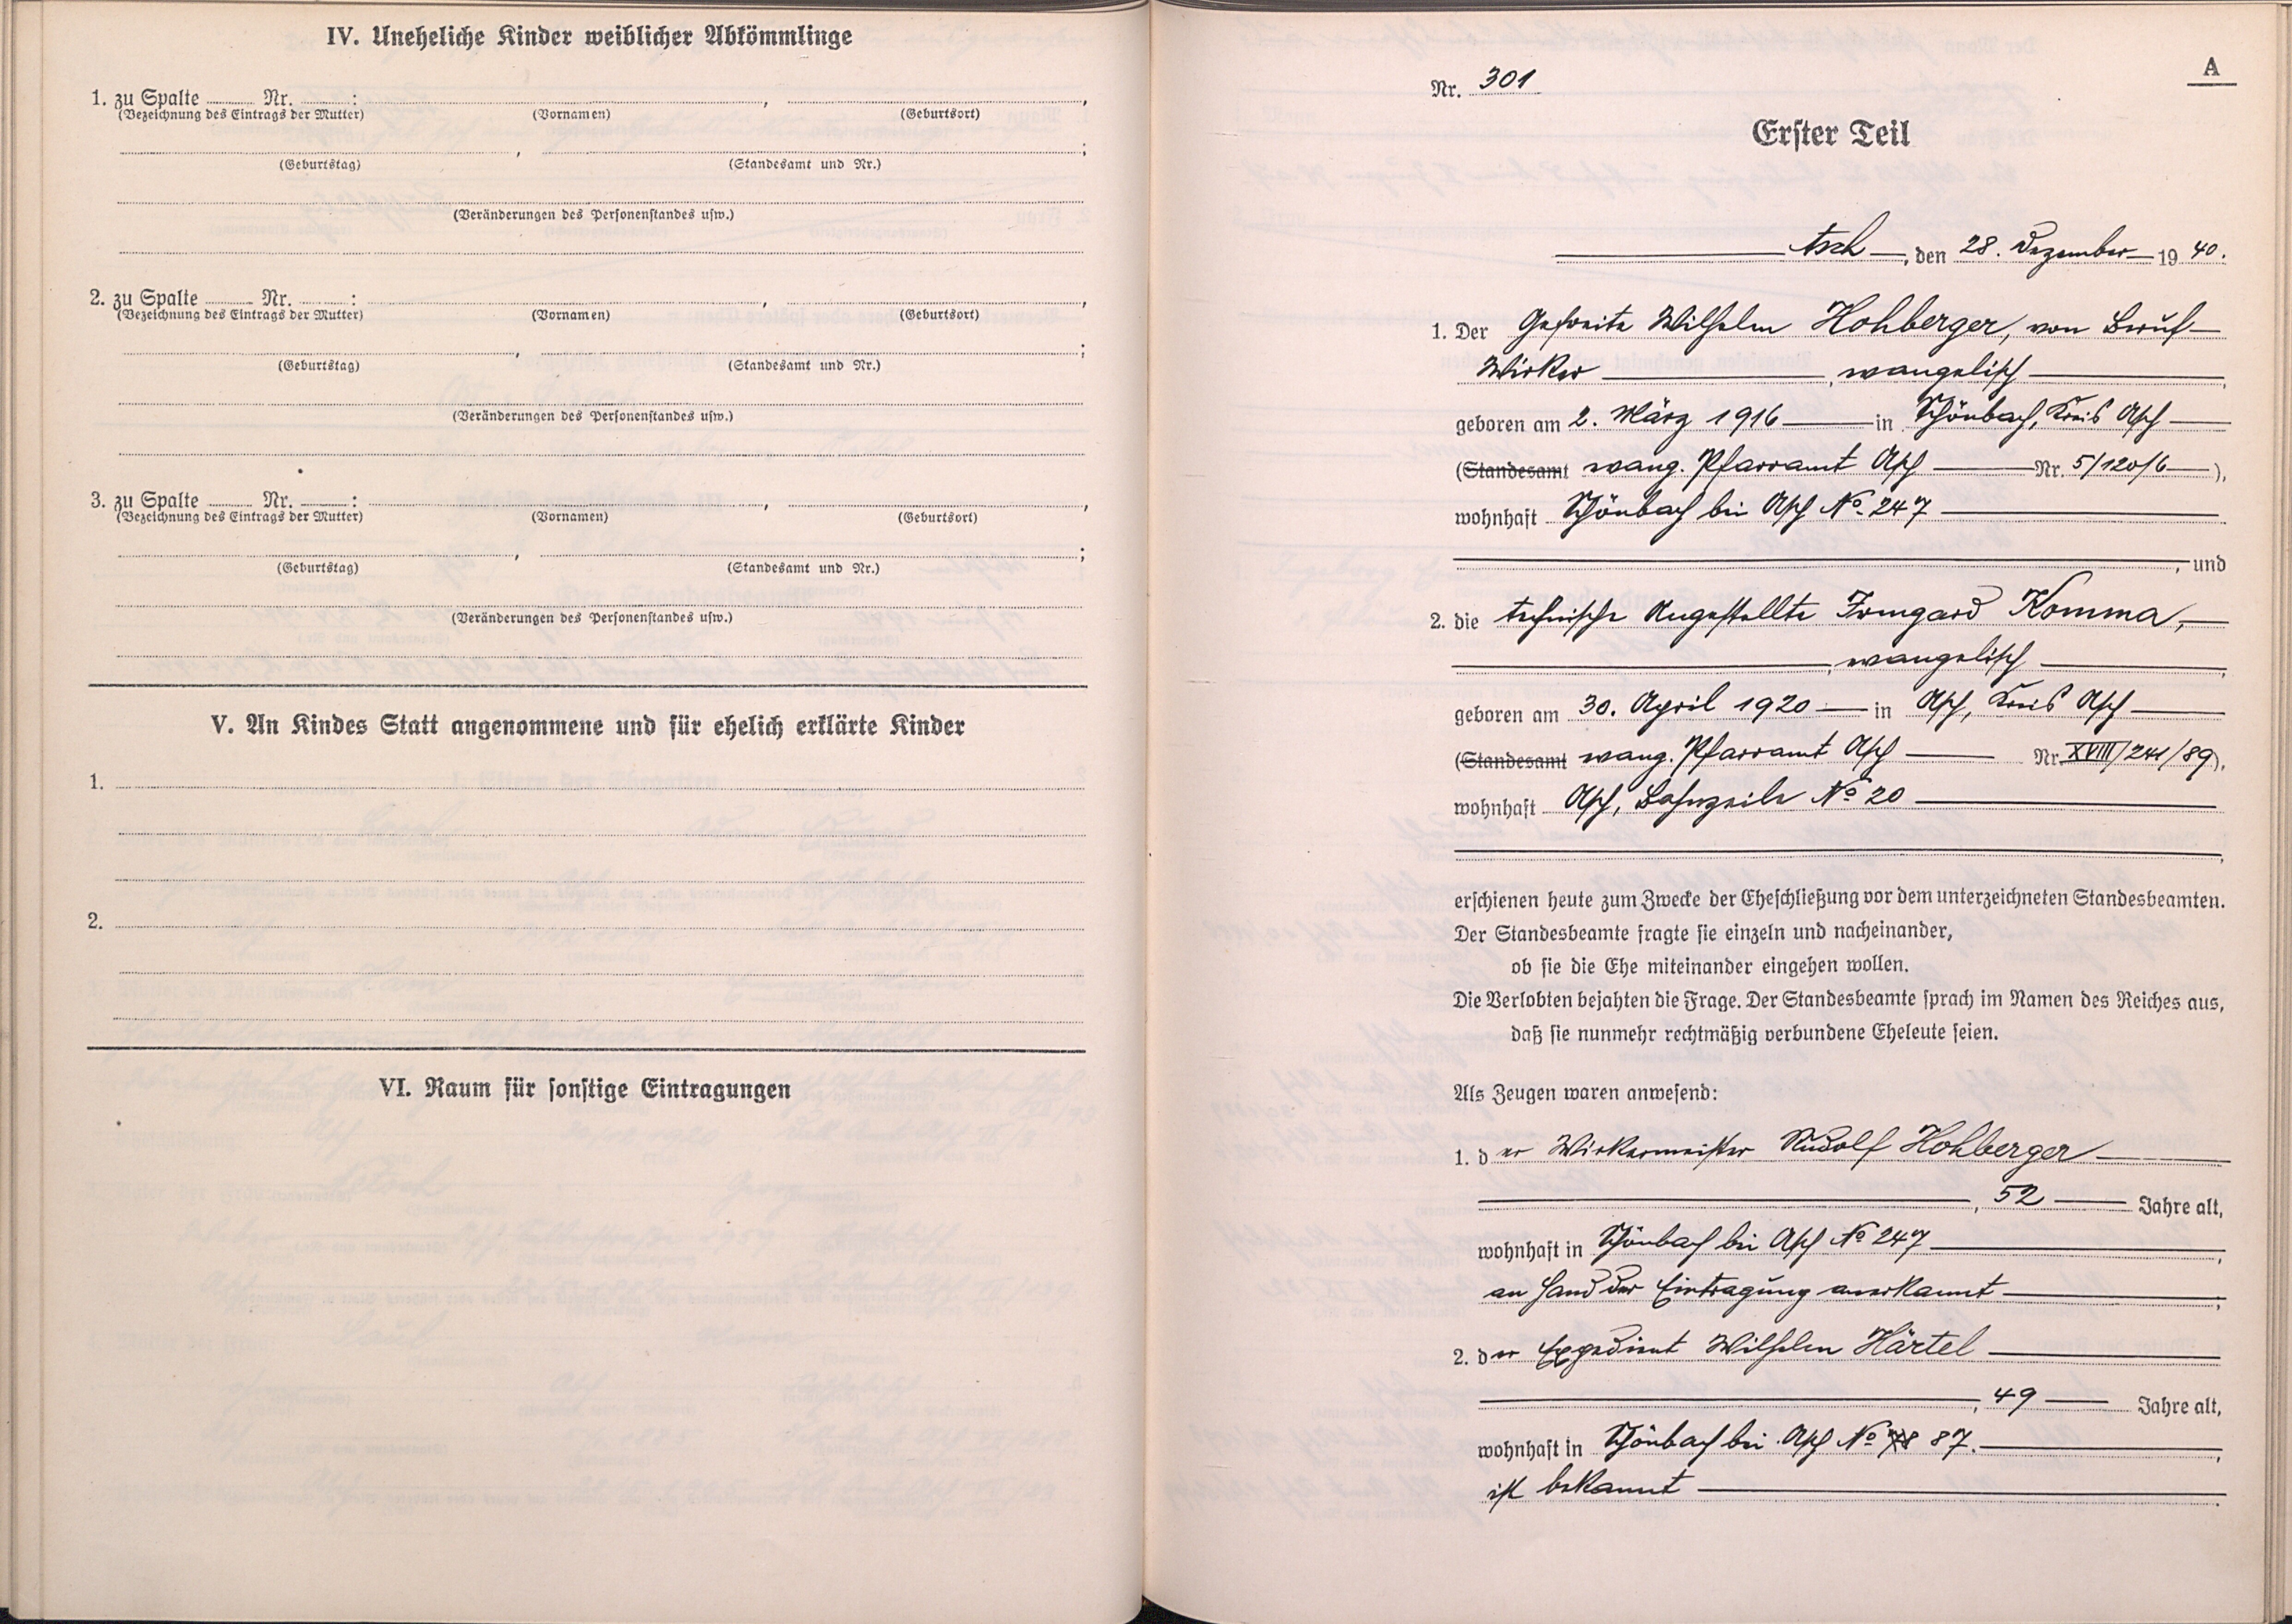 IV. Uneheliche Kinder weiblicher Abkömmlinge
1. zu Spalte ........ Nr. ........ : ........ , ........ ,
(Bezeichnung des Eintrags der Mutter) (Vornamen) (Geburtsort)
........ , ........ ;
(Geburtstag) (Standesamt und Nr.)
(Veränderungen des Personenstandes usw.)
2. zu Spalte ........ Nr. ........ : ........ , ........ ,
(Bezeichnung des Eintrags der Mutter) (Vornamen) (Geburtsort)
........ , ........ ;
(Geburtstag) (Standesamt und Nr.)
(Veränderungen des Personenstandes usw.)
3. zu Spalte ........ Nr. ........ : ........ , ........ ,
(Bezeichnung des Eintrags der Mutter) (Vornamen) (Geburtsort)
........ , ........ ;
(Geburtstag) (Standesamt und Nr.)
(Veränderungen des Personenstandes usw.)
V. An Kindes Statt angenommene und für ehelich erklärte Kinder
1.
2.
VI. Raum für sonstige Eintragungen
A
Nr. 301
Erster Teil
Asch, den 28. Dezember 1940.
1. Der Gefreite Wilhelm Hohberger, von Beruf
Wirker, evangelisch,
geboren am 2. März 1916 in Schönbach, Kreis Asch
(Standesamt evang. Pfarramt Asch Nr. 5/120/6),
wohnhaft Schönbach bei Asch No. 247
, und
2. die technische Angestellte Irmgard Komma,
, evangelisch,
geboren am 30. April 1920 in Asch, Kreis Asch
(Standesamt evang. Pfarramt Asch Nr. XVIII/241/89),
wohnhaft Asch, Bahnzeile No 20
,
erschienen heute zum Zwecke der Eheschließung vor dem unterzeichneten Standesbeamten.
Der Standesbeamte fragte sie einzeln und nacheinander,
ob sie die Ehe miteinander eingehen wollen.
Die Verlobten bejahten die Frage. Der Standesbeamte sprach im Namen des Reiches aus,
daß sie nunmehr rechtmäßig verbundene Eheleute seien.
Als Zeugen waren anwesend:
1. der Wirkermeister Rudolf Hohberger
, 52 Jahre alt,
wohnhaft in Schönbach bei Asch No 247,
an Hand der Eintragung anerkannt,
2. der Expedient Wilhelm Härtel
, 49 Jahre alt,
wohnhaft in Schönbach bei Asch No 87.,
ist bekannt.